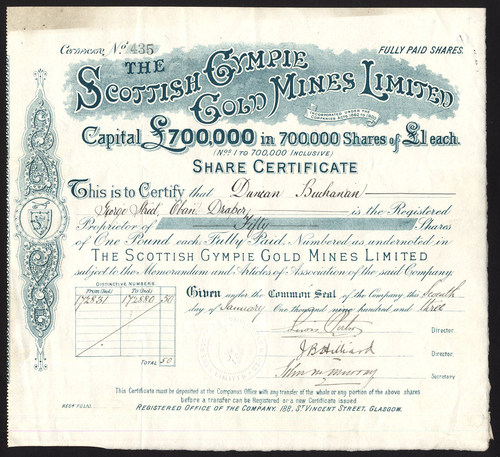 Certificate No. 435
FULLY PAID SHARES.
THE
SCOTTISH GYMPIE
GOLD MINES LIMITED
INCORPORATED UNDER THE
COMPANIES ACTS 1862 TO 1900
Capital £700,000 in 700,000 Shares of £1 each.
(Nos 1 TO 700,000 INCLUSIVE)
SHARE CERTIFICATE
This is to Certify that Duncan Buchanan
George Street, Oban, Draper, is the Registered
Proprietor of Fifty Shares
of One Pound each, Fully Paid, Numbered as undernoted in
THE SCOTTISH GYMPIE GOLD MINES LIMITED
subject to the Memorandum and Articles of Association of the said Company.
DISTINCTIVE NUMBERS.
From (Incl.) To (Incl.)
172831 172880 50
TOTAL 50
Given under the Common Seal of the Company the Seventh
day of January One thousand nine hundred and three
Director.
J B Hilliard
Director.
John M Murray
Secretary
This Certificate must be deposited at the Companys Office with any transfer of the whole or any portion of the above shares
before a transfer can be Registered or a new Certificate issued
REGD FOLIO
REGISTERED OFFICE OF THE COMPANY, 188, ST VINCENT STREET, GLASGOW.